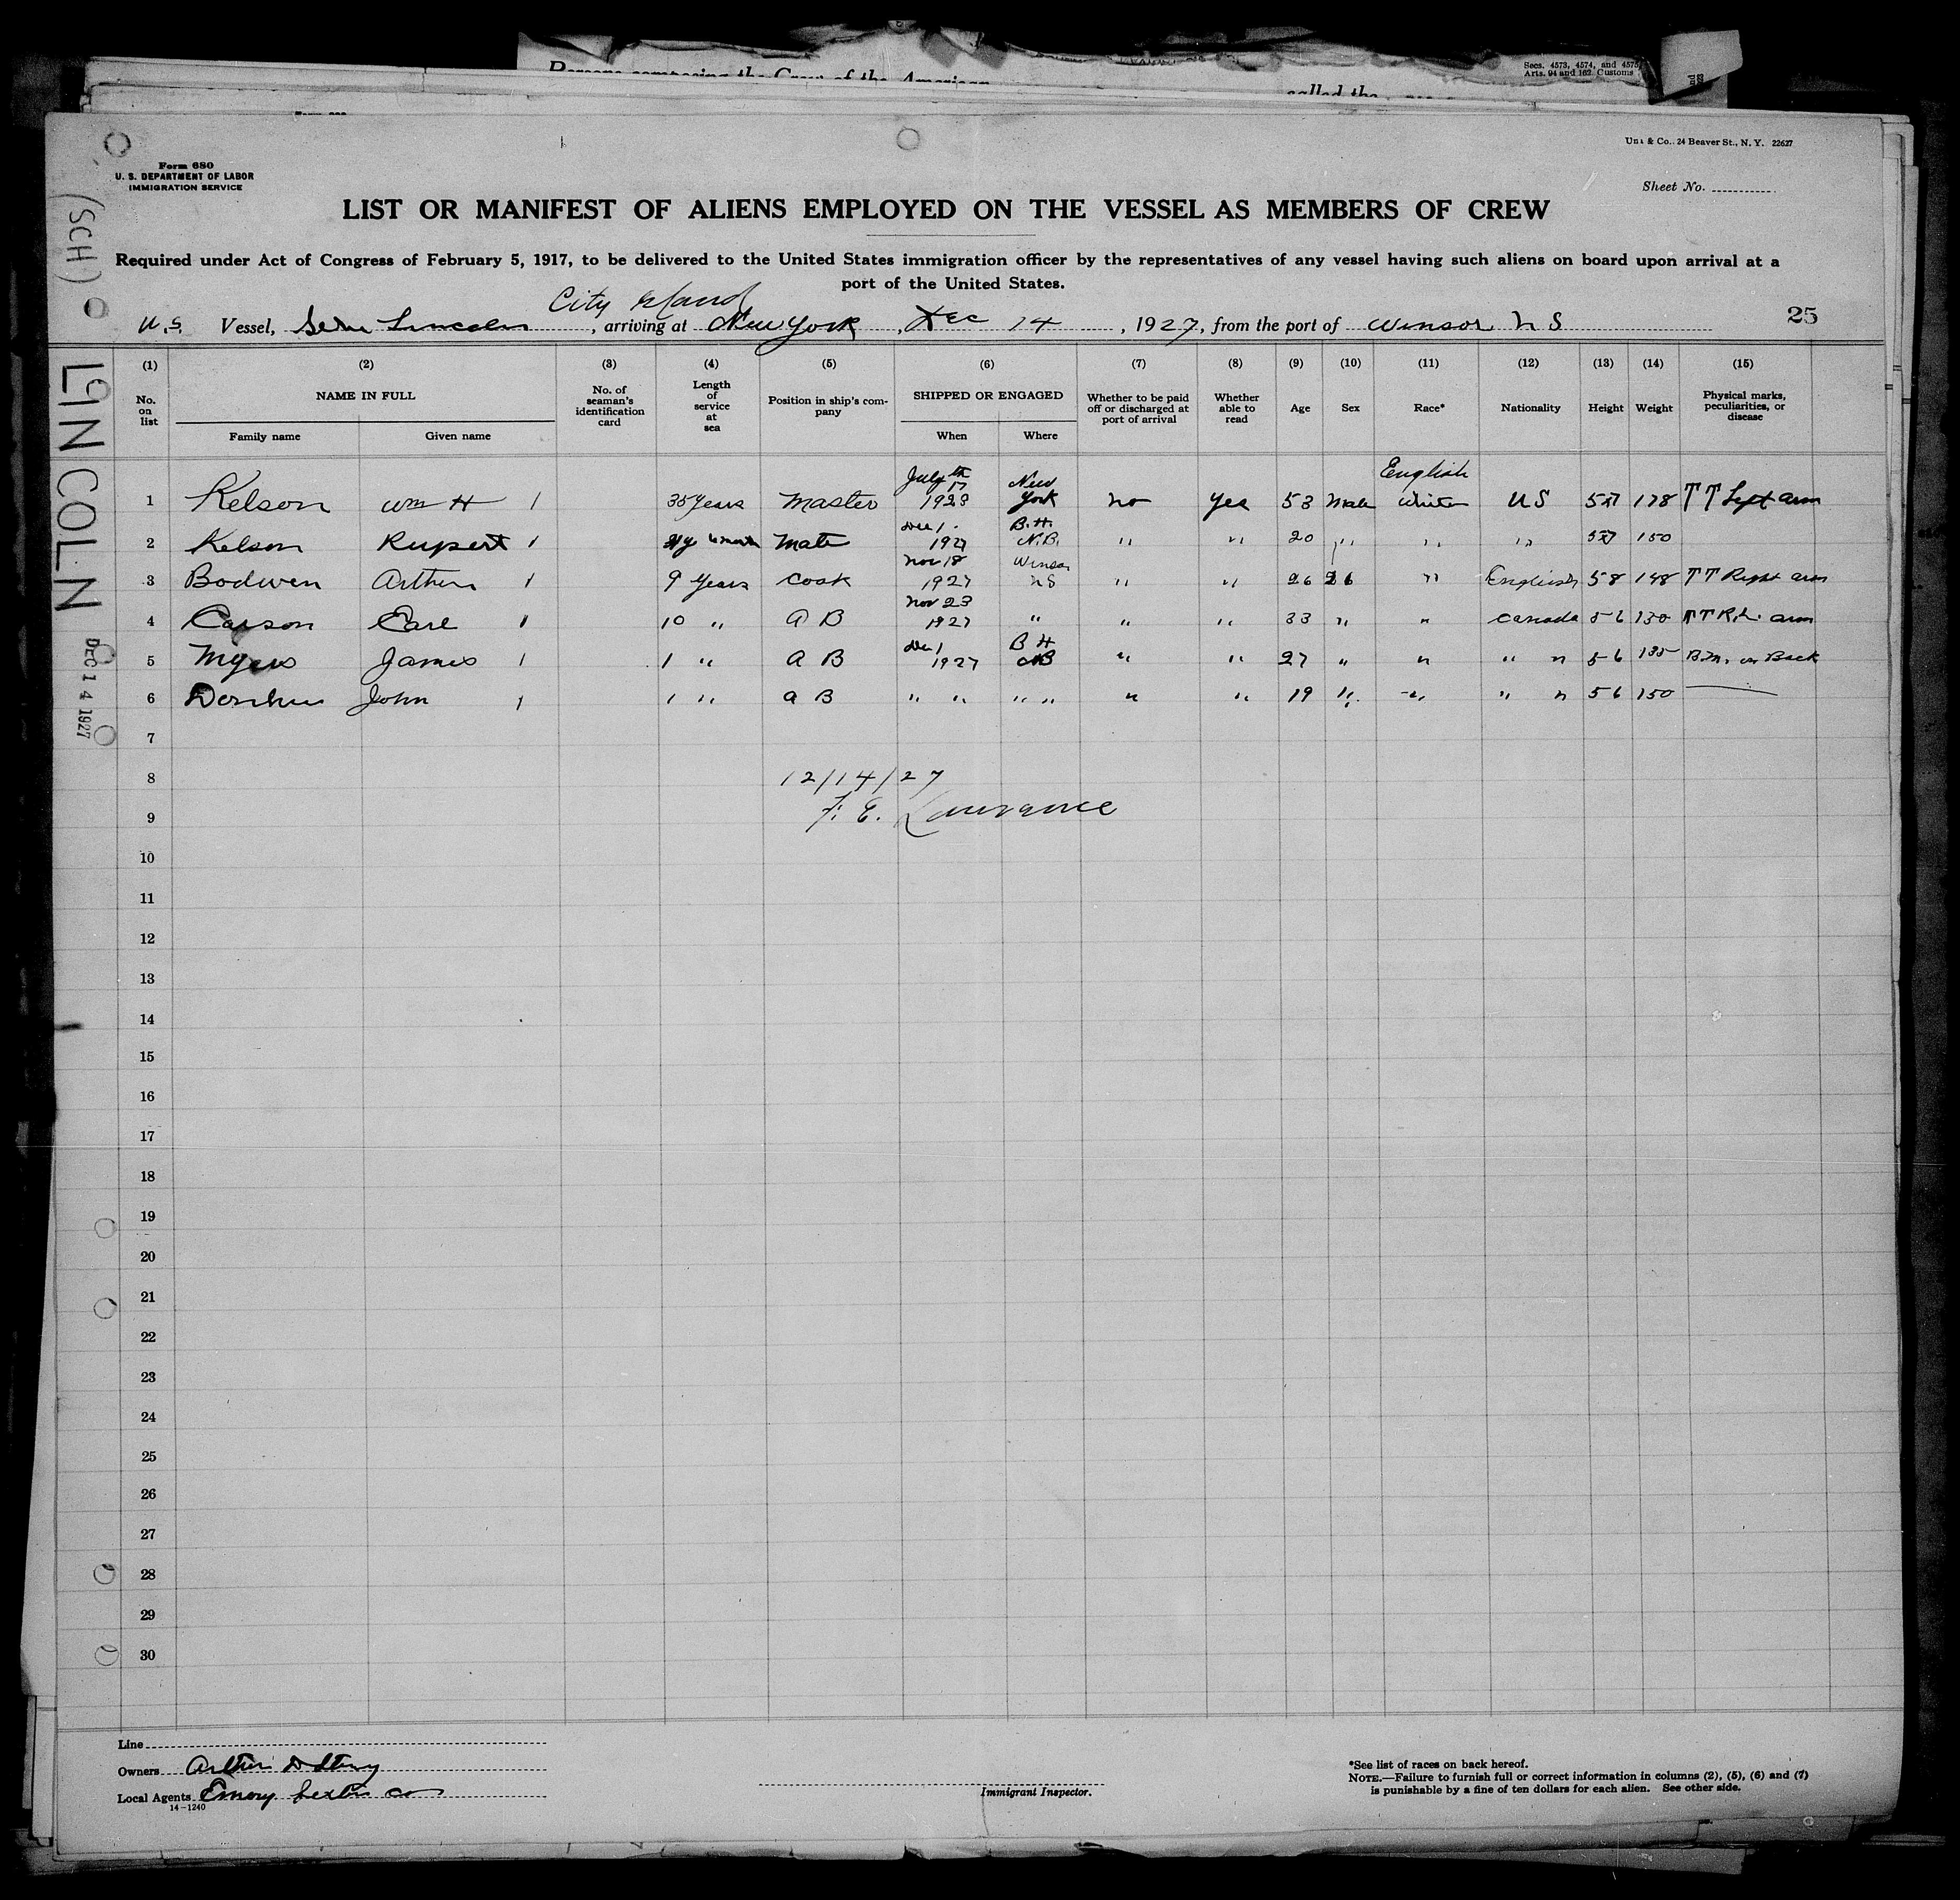 Persons composing the Crew of the American
called the
Secs. 4573, 4574, and 4575
Arts. 94 and 162 Customs
Form 680
U. S. DEPARTMENT OF LABOR
IMMIGRATION SERVICE
& Co., 24 Beaver St., N. Y. 22627
Sheet No.
LIST OR MANIFEST OF ALIENS EMPLOYED ON THE VESSEL AS MEMBERS OF CREW
Required under Act of Congress of February 5, 1917, to be delivered to the United States immigration officer by the representatives of any vessel having such aliens on board upon arrival at a
port of the United States.
City Island
U.S. Vessel, Schr Lincoln, arriving at New York, Dec 14, 1927, from the port of Winsor N S
25
(SCH) LINCOLN
DEC 14 1927
(1) (2) (3) (4) (5) (6) (7) (8) (9) (10) (11) (12) (13) (14) (15)
No. on list NAME IN FULL Family name Given name No. of seaman's identification card Length of service at sea Position in ship's company SHIPPED OR ENGAGED When Where Whether to be paid off or discharged at port of arrival Whether able to read Age Sex Race* Nationality Height Weight Physical marks, peculiarities, or disease
1 Kelson Wm H 1 35 Years Master July 17th 1923 New York no Yes 53 Male English White US 5 7 178 TT Left arm
2 Kelson Rupert 1 6 month Mate Dec 1 1927 B.H. N.B. " " 20 " " " 5 7 150
3 Bodwen Arthur 1 9 Years Cook Nov 18 1927 Winsor NS " " 26 26 " English 5 8 148 TT Right arm
4 Carson Earl 1 10 " A B Nov 23 1927 " " " 33 " " Canada 5 6 130 TT Rh. arm
5 Myers James 1 1 " A B Dec 1 1927 B H NB " " 27 " " " " 5 6 135 B.M. on Back
6 John 1 1 " A B " " " " " " 19 " " " " 5 6 150 —
7
8
12/14/27
9
F. E. Lawrance
10
11
12
13
14
15
16
17
18
19
20
21
22
23
24
25
26
27
28
29
30
Line
Owners Arthur D Story
Local Agents Emory Sexton Co
14-1240
Immigrant Inspector.
*See list of races on back hereof.
NOTE.—Failure to furnish full or correct information in columns (2), (5), (6) and (7)
is punishable by a fine of ten dollars for each alien. See other side.